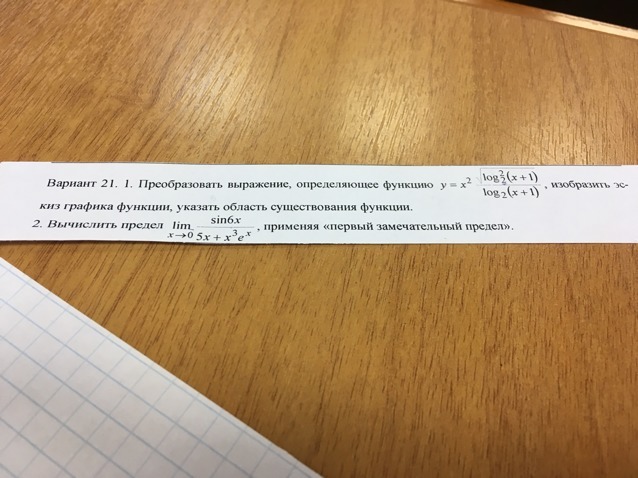 Вариант 21. 1. Преобразовать выражение, определяющее функцию y = x² √(log₂²(x+1)) / log₂(x+1), изобразить эс-
киз графика функции, указать область существования функции.
2. Вычислить предел lim x→0 sin6x / (5x + x³eˣ), применяя «первый замечательный предел».